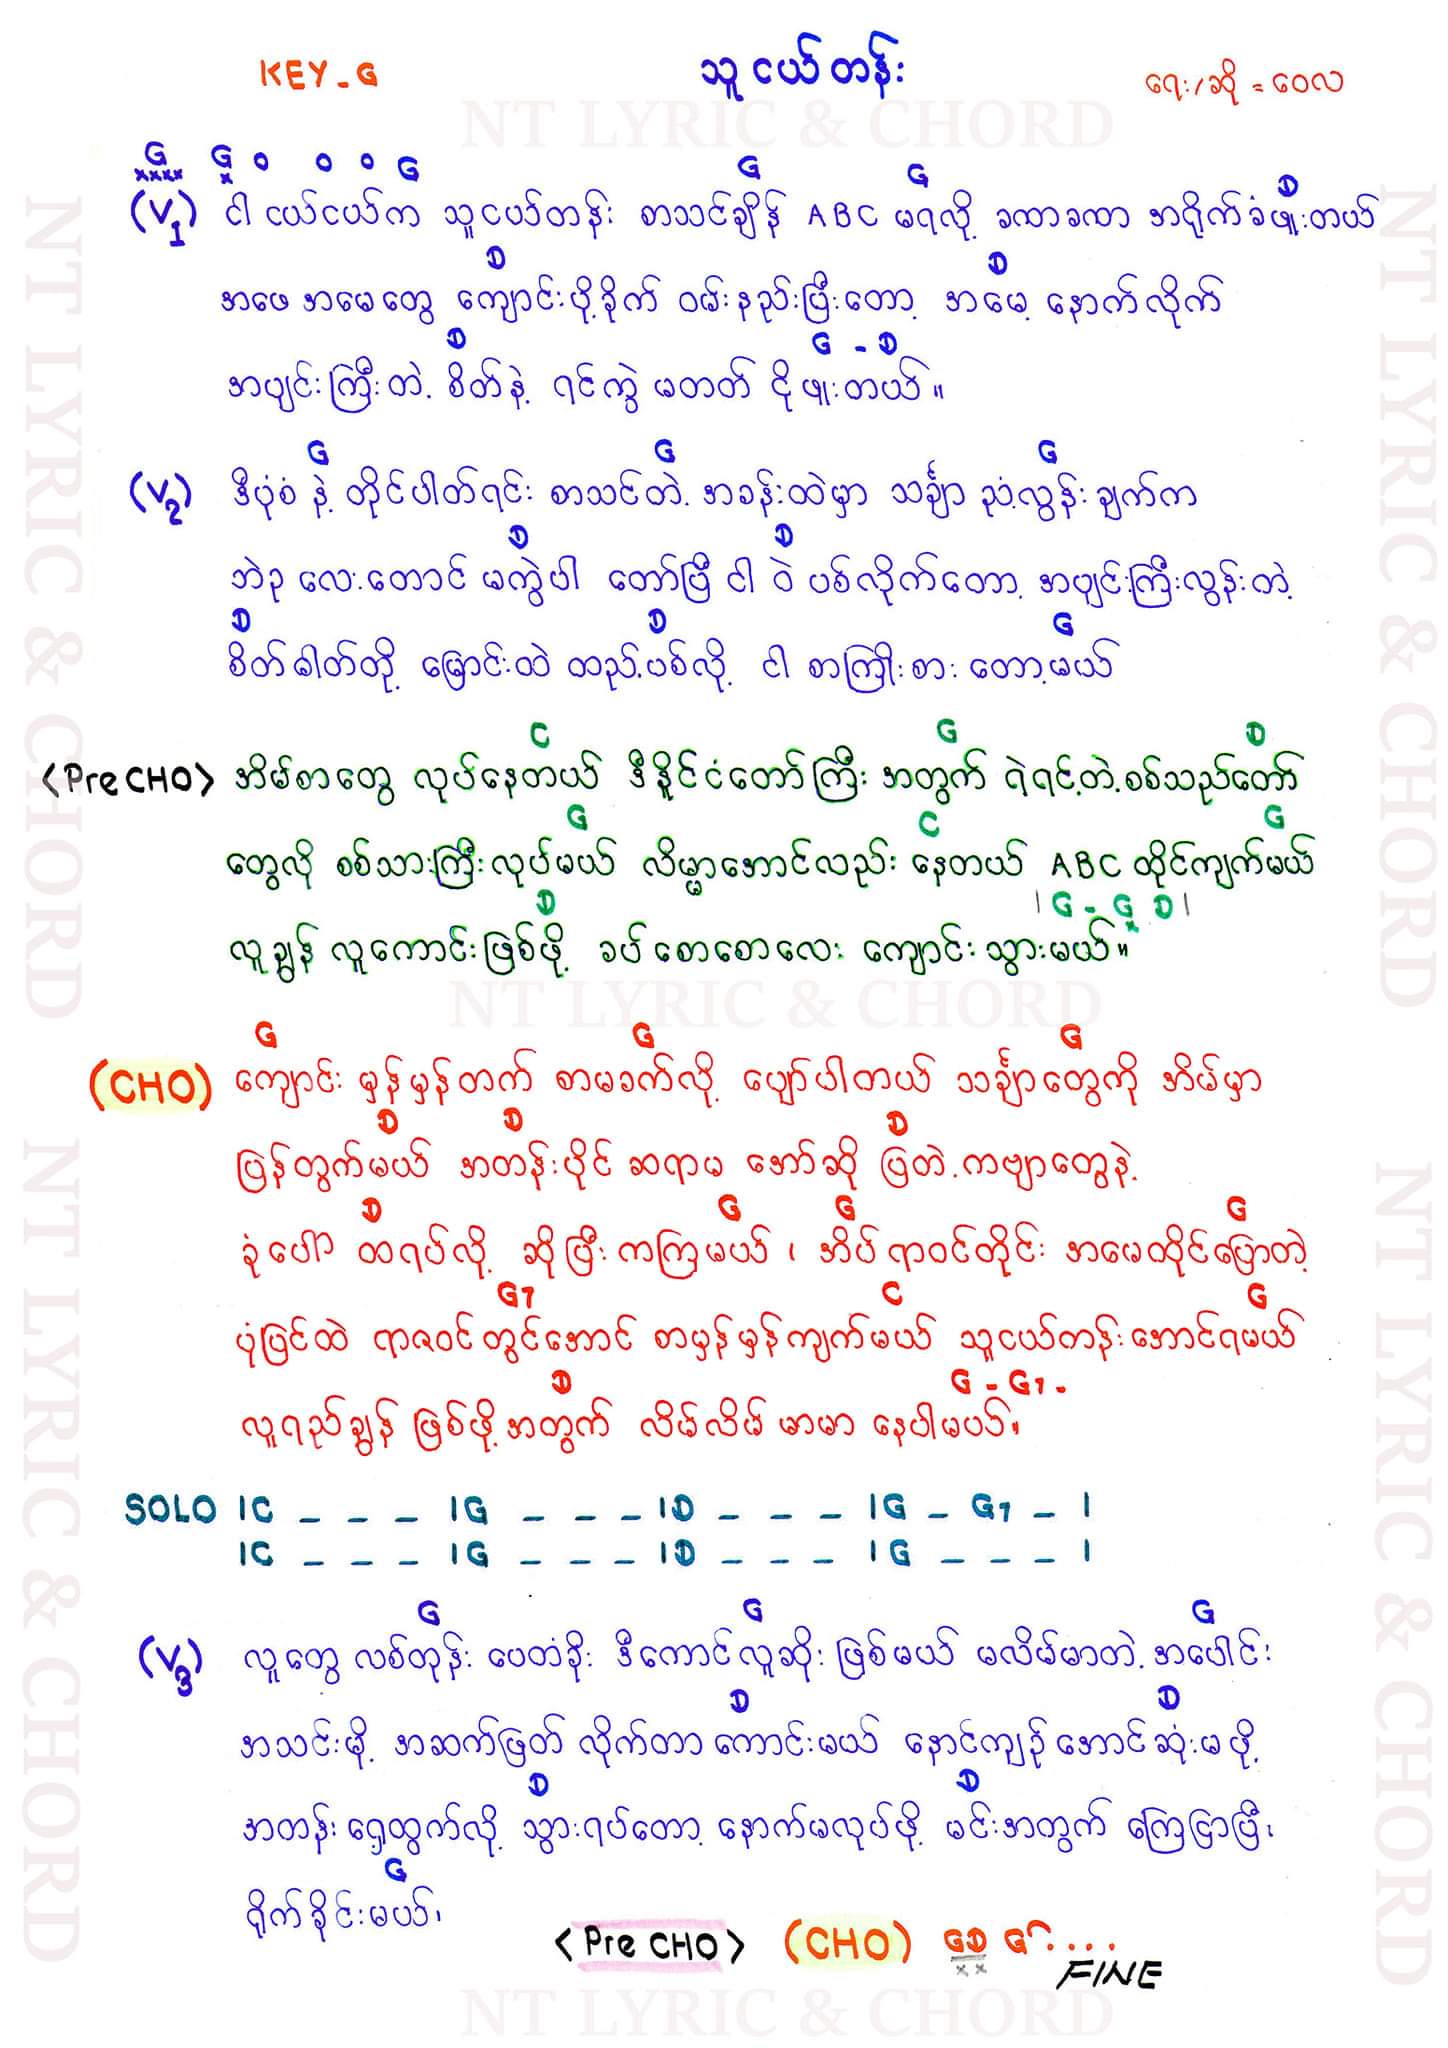 KEY - G
သူငယ်တန်း
ရေး/ဆို = ဝေလ
NT LYRIC & CHORD
G G G G G D
(V1) ငါ ငယ်ငယ်က သူငယ်တန်း စာသင်ချိန် ABC မရလို့ ခဏခဏ အရိုက်ခံဖူးတယ်
D D
အဖေ အမေတွေ ကျောင်းပို့ခိုက် ဝမ်းနည်းပြီးတော့ အမေ့ နောက်လိုက်
D G - D
အပျင်းကြီးတဲ့ စိတ်နဲ့ ရင်ကွဲ မတတ် ငိုဖူးတယ်။
G G G
(V2) ဒီပုံစံ နဲ့ တိုင်ပါတ်ရင်း စာသင်တဲ့ အခန်းထဲမှာ သင်္ချာ ညံ့လွန်းချက်က
D D
ဘဲဥ လေးတောင် မကွဲပါ တော်ပြီ ငါ ဝဲ ပစ်လိုက်တော့ အပျင်းကြီးလွန်းတဲ့
D D G
စိတ်ဓါတ်တို့ မြောင်းထဲ ထည့်ပစ်လို့ ငါ စာကြိုးစား တော့မယ်
C G D
<Pre CHO> အိမ်စာတွေ လုပ်နေတယ် ဒီနိုင်ငံတော်ကြီး အတွက် ရဲရင့်တဲ့ စစ်သည်တော်
G C G
တွေလို စစ်သားကြီးလုပ်မယ် လိမ္မာအောင်လည်း နေတယ် ABC ထိုင်ကျက်မယ်
D | G - G D |
လူချွန် လူကောင်းဖြစ်ဖို့ ခပ်စောစောလေး ကျောင်းသွားမယ်။
NT LYRIC & CHORD
G G G
(CHO) ကျောင်း မှန်မှန်တက် စာမခက်လို့ ပျော်ပါတယ် သင်္ချာတွေကို အိမ်မှာ
D D D
ပြန်တွက်မယ် အတန်းပိုင် ဆရာမ အော်ဆို ပြတဲ့ ကဗျာတွေနဲ့
D G G G
ခုံပေါ် ထရပ်လို့ ဆိုပြီး ကကြမယ် ၊ အိပ်ရာဝင်တိုင်း အမေထိုင်ပြောတဲ့
G7 C G
ပုံပြင်ထဲ ရာဇဝင်တွင်အောင် စာမှန်မှန်ကျက်မယ် သူငယ်တန်းအောင်ရမယ်
D G - G7 -
လူရည်ချွန် ဖြစ်ဖို့အတွက် လိမ်လိမ် မာမာ နေပါမယ်၊
SOLO |C _ _ _ |G _ _ _ |D _ _ _ |G _ G7 _ |
|C _ _ _ |G _ _ _ |D _ _ _ |G _ _ _ |
G G G
(V3) လူတွေ လစ်တုန်း ပေတံခိုး ဒီကောင်လူဆိုးဖြစ်မယ် မလိမ်မာတဲ့ အပေါင်း
D D
အသင်းမို့ အဆက်ဖြတ် လိုက်တာ ကောင်းမယ် နောင်ကျဉ်အောင်ဆုံးမဖို့
D D
အတန်းရှေ့ထွက်လို့ သွားရပ်တော့ နောက်မလုပ်ဖို့ မင်းအတွက် ကြေငြာပြီး
G
ရိုက်ခိုင်းမယ်၊
<Pre CHO> (CHO) GD G....
FINE
NT LYRIC & CHORD
NT LYRIC & CHORD
NT LYRIC & CHORD
NT LYRIC & CHORD
NT LYRIC & CHORD